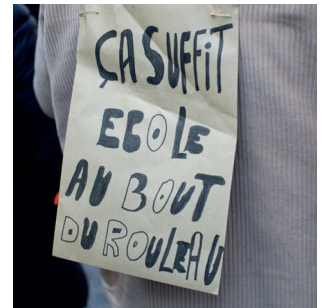 ÇA SUFFiT
ECOLE
AU BOUT
DU ROULEAU